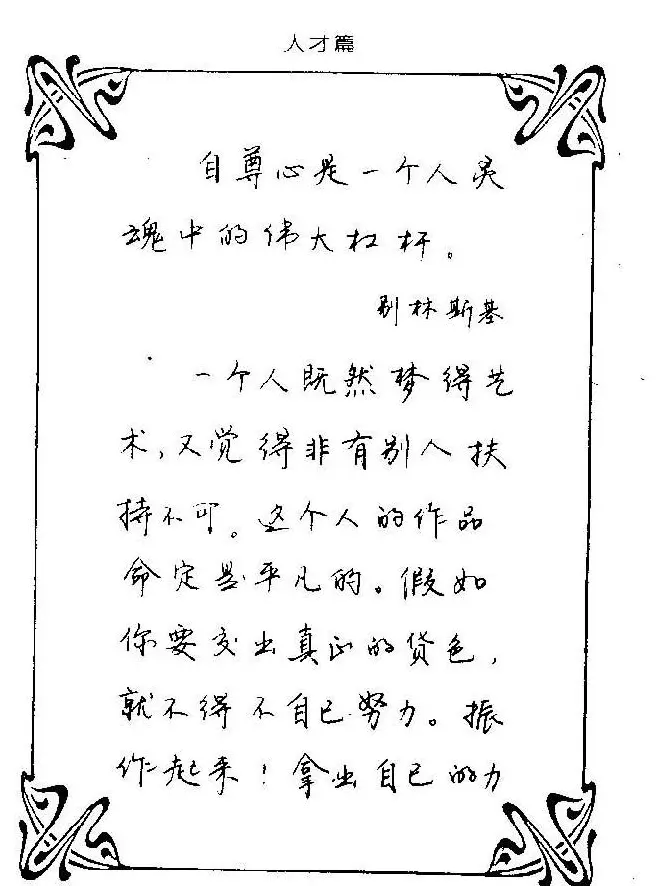 人才篇
自尊心是一个人灵
魂中的伟大杠杆。
别林斯基
一个人既然梦得艺
术,又觉得非有别人扶
持不可。这个人的作品
命定是平凡的。假如
你要交出真正的货色,
就不得不自己努力。振
作起来！拿出自己的力